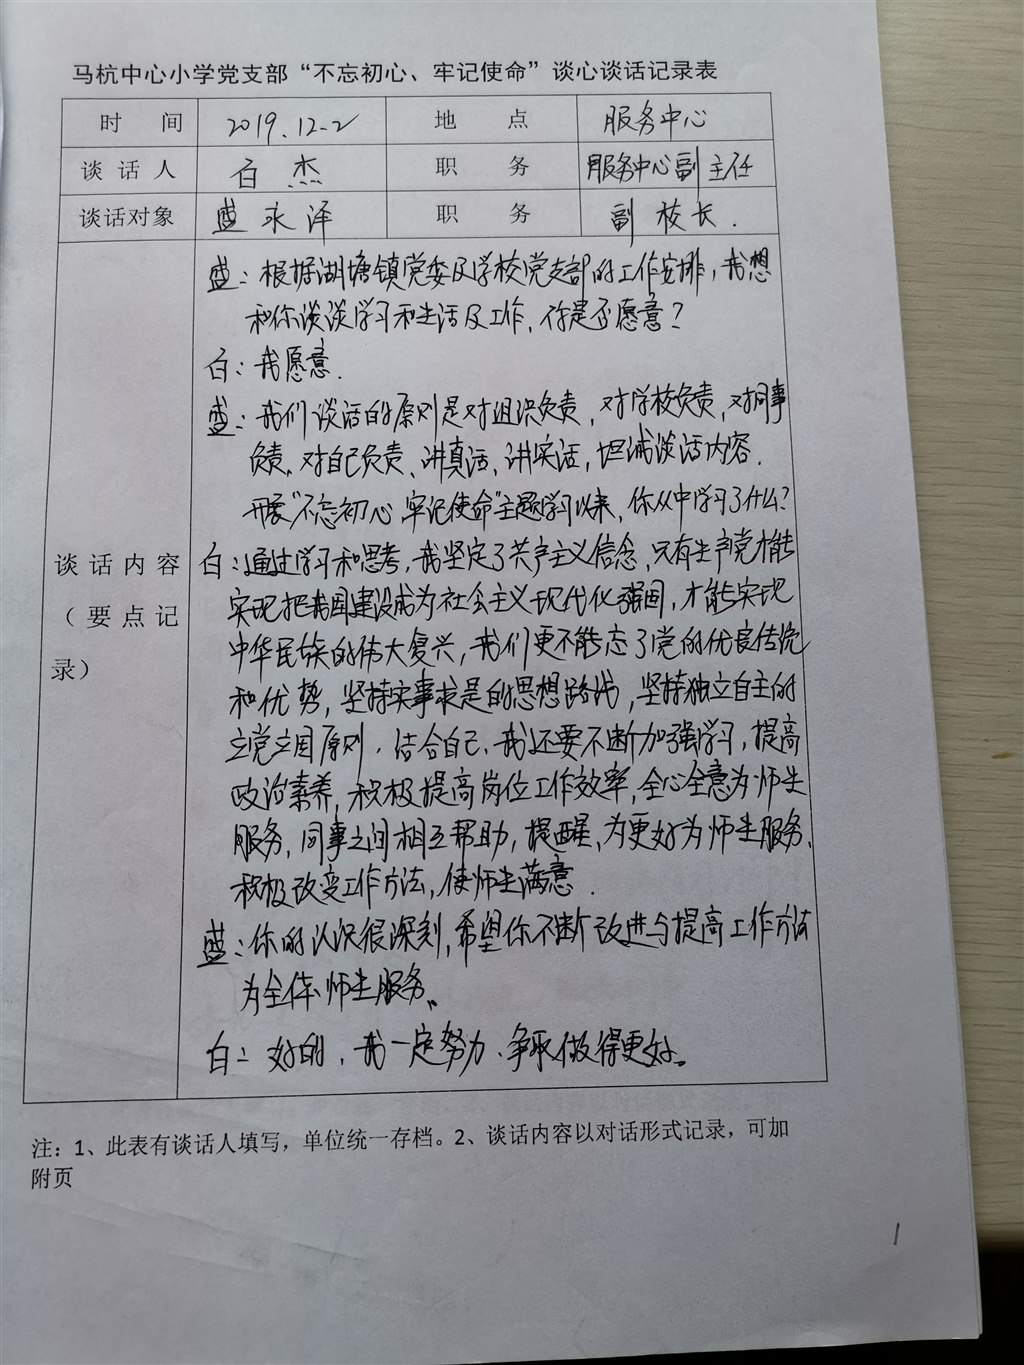 马杭中心小学党支部“不忘初心、牢记使命”谈心谈话记录表
时 间 2019.12.2 地 点 服务中心
谈 话 人 白杰 职 务 服务中心副主任
谈话对象 盛永泽 职 务 副校长.
谈 话 内 容
（ 要 点 记
录）
盛：根据湖塘镇党委及学校党支部的工作安排，我想
和你谈谈学习和生活及工作，你是否愿意？
白：我愿意.
盛：我们谈话的原则是对组织负责，对学校负责，对同事
负责，对自己负责、讲真话，讲实话，坦诚谈话内容.
开展“不忘初心 牢记使命”主题学习以来，你从中学习了什么？
白：通过学习和思考，我坚定了共产主义信念，只有生产党才能
实现把我国建设成为社会主义现代化强国，才能实现
中华民族的伟大复兴，我们更不能忘了党的优良传统
和优势，坚持实事求是的思想路线，坚持独立自主的
立党立国原则．结合自己，我还要不断加强学习，提高
政治素养，积极提高岗位工作效率，全心全意为师生
服务，同事之间相互帮助，提醒，为更好为师生服务，
积极改变工作方法，使师生满意．
盛：你的认识很深刻，希望你不断改进与提高工作方法
为全体师生服务。
白：好的，我一定努力、争取做得更好。
注：1、此表有谈话人填写，单位统一存档。2、谈话内容以对话形式记录，可加
附页
1